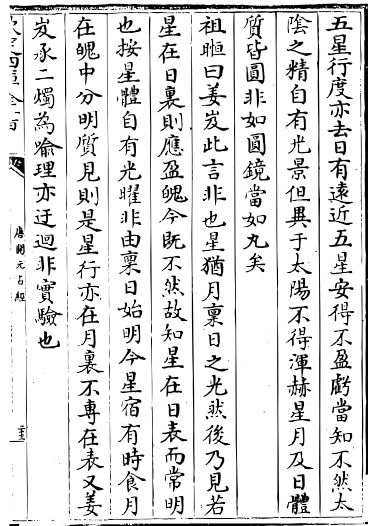 五星行度亦去日有遠近五星安得不盈虧當知不然太
陰之精自有光景但異于太陽不得渾赫星月及日體
質皆圓非如圓鏡當如丸矣
祖暅曰姜岌此言非也星猶月稟日之光然後乃見若
星在日裏則應盈魄今既不然故知星在日表而常明
也按星體自有光曜非由稟日始明今星宿有時食月
在魄中分明質見則是星行亦在月裏不專在表又姜
岌承二燭為喻理亦迂迴非實驗也
唐開元占經